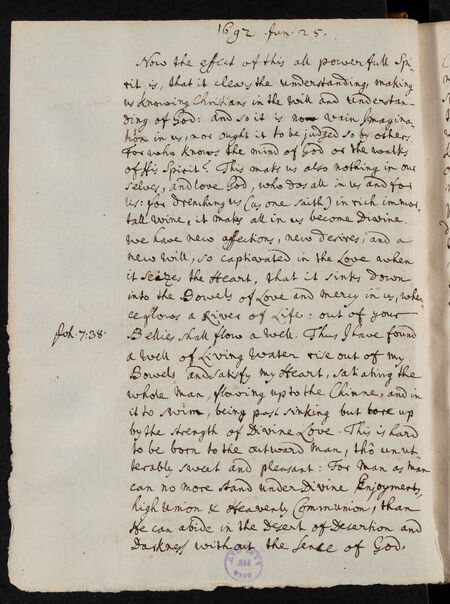 1692 Jun: 25.
Now the effect of this all powerfull Spi-
rit is, that it clears the understanding, making
us knowing Christians in the Will and understan-
ding of God: and so it is no vain Imagina-
tion in us, nor ought it to be judged so by others.
For who knows the mind of God or the walks
of His Spirit? This maks us also nothing in our
selves, and love God, who dos all in us and for
us: for drenching us (as one saith) in rich immor-
tall wine, it maks all in us become Divine.
we have new affections, new desires, and a
new will, so captivated in the Love when
it seizes the Heart, that it sinks down
into the Bowels of Love and mercy in us, when-
ce flows a River of Life: out of your
Joh: 7:38. Bellies shall flow a well. Thus I have found
a well of Living water rise out of my
Bowels and satisfy my Heart, satiating the
whole man, flowing up to the Chinne, and in
it to swim, being past sinking but bore up
by the strength of Divine Love. This is hard
to be born to the outward man, thô unut-
terably sweet and pleasant: For man as man
can no more stand under Divine Enjoyments,
high Union & Heavenly Communion, than
He can abide in the Desert of Desertion and
Darkness without the sence of God.